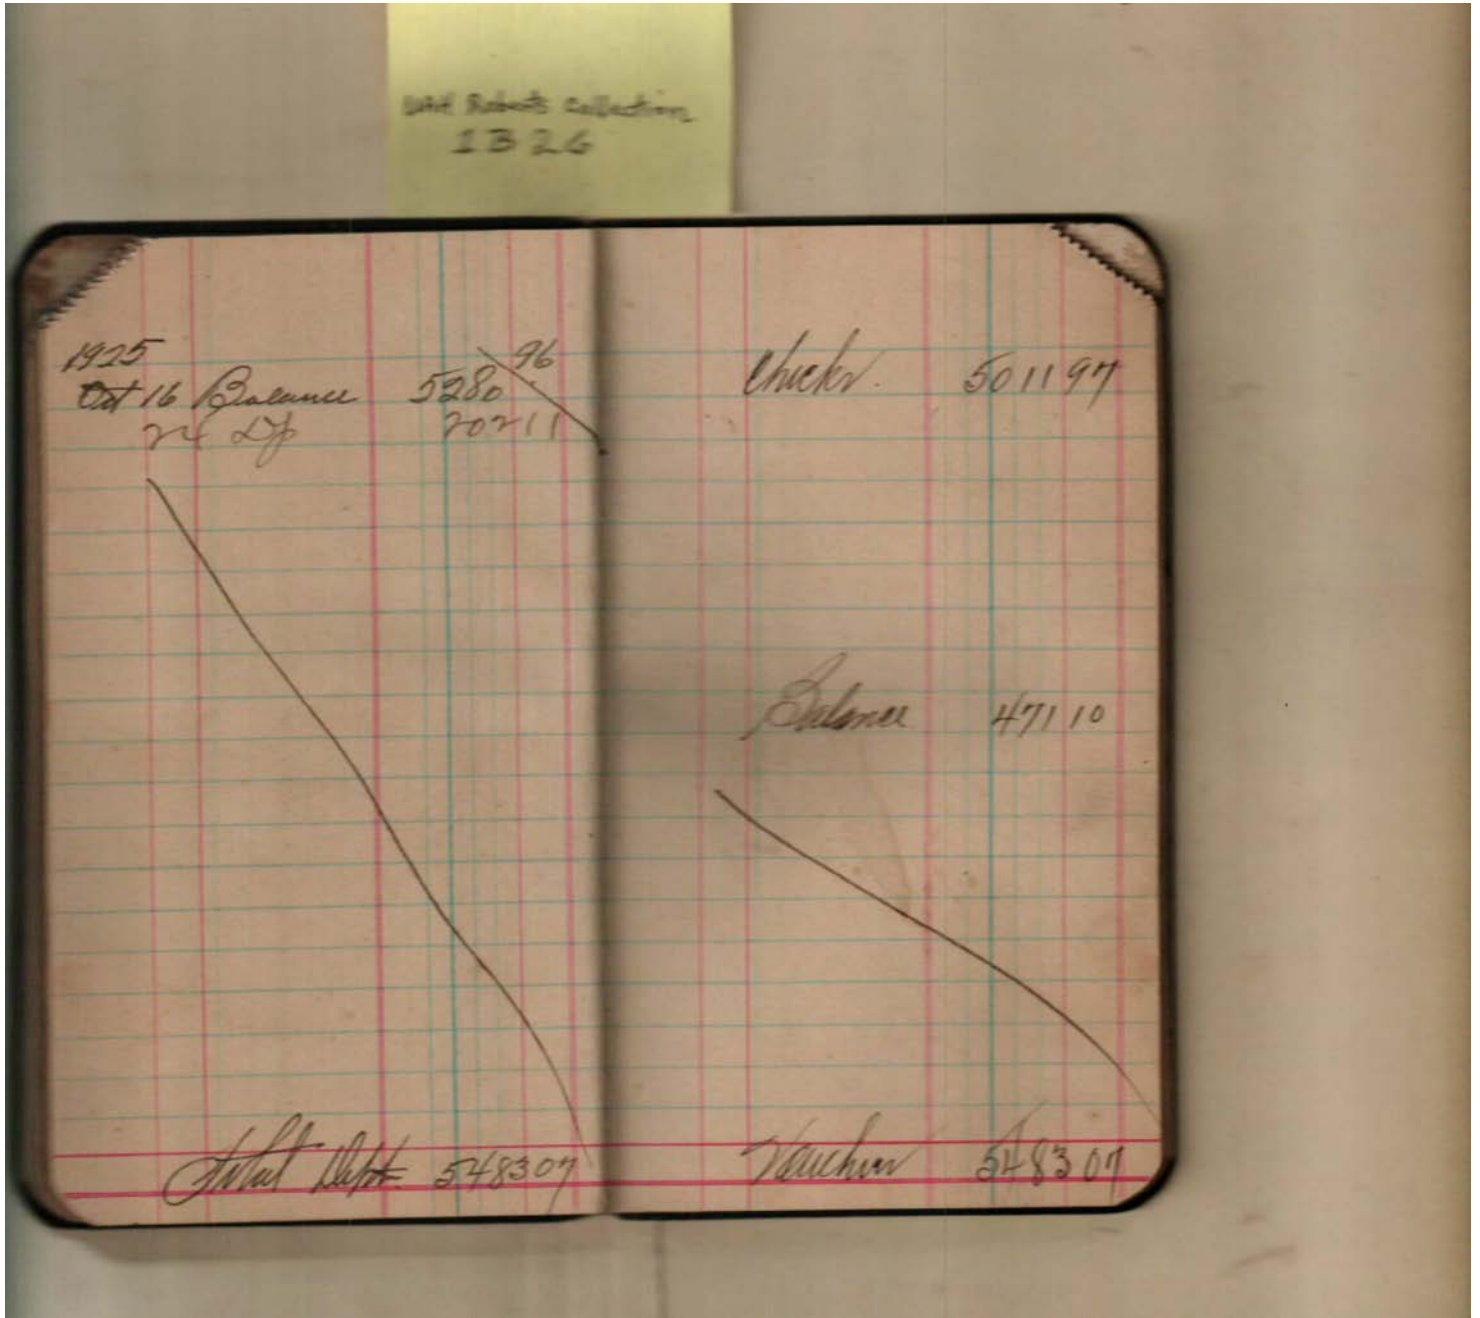 UAH Roberts Collection
1B26
1925
Oct 16 Balance 5280 96
24 Dp 202 11
Total Dept. 5483 07
Checks. 5011 97
Balance 471 10
Voucher 5483 07